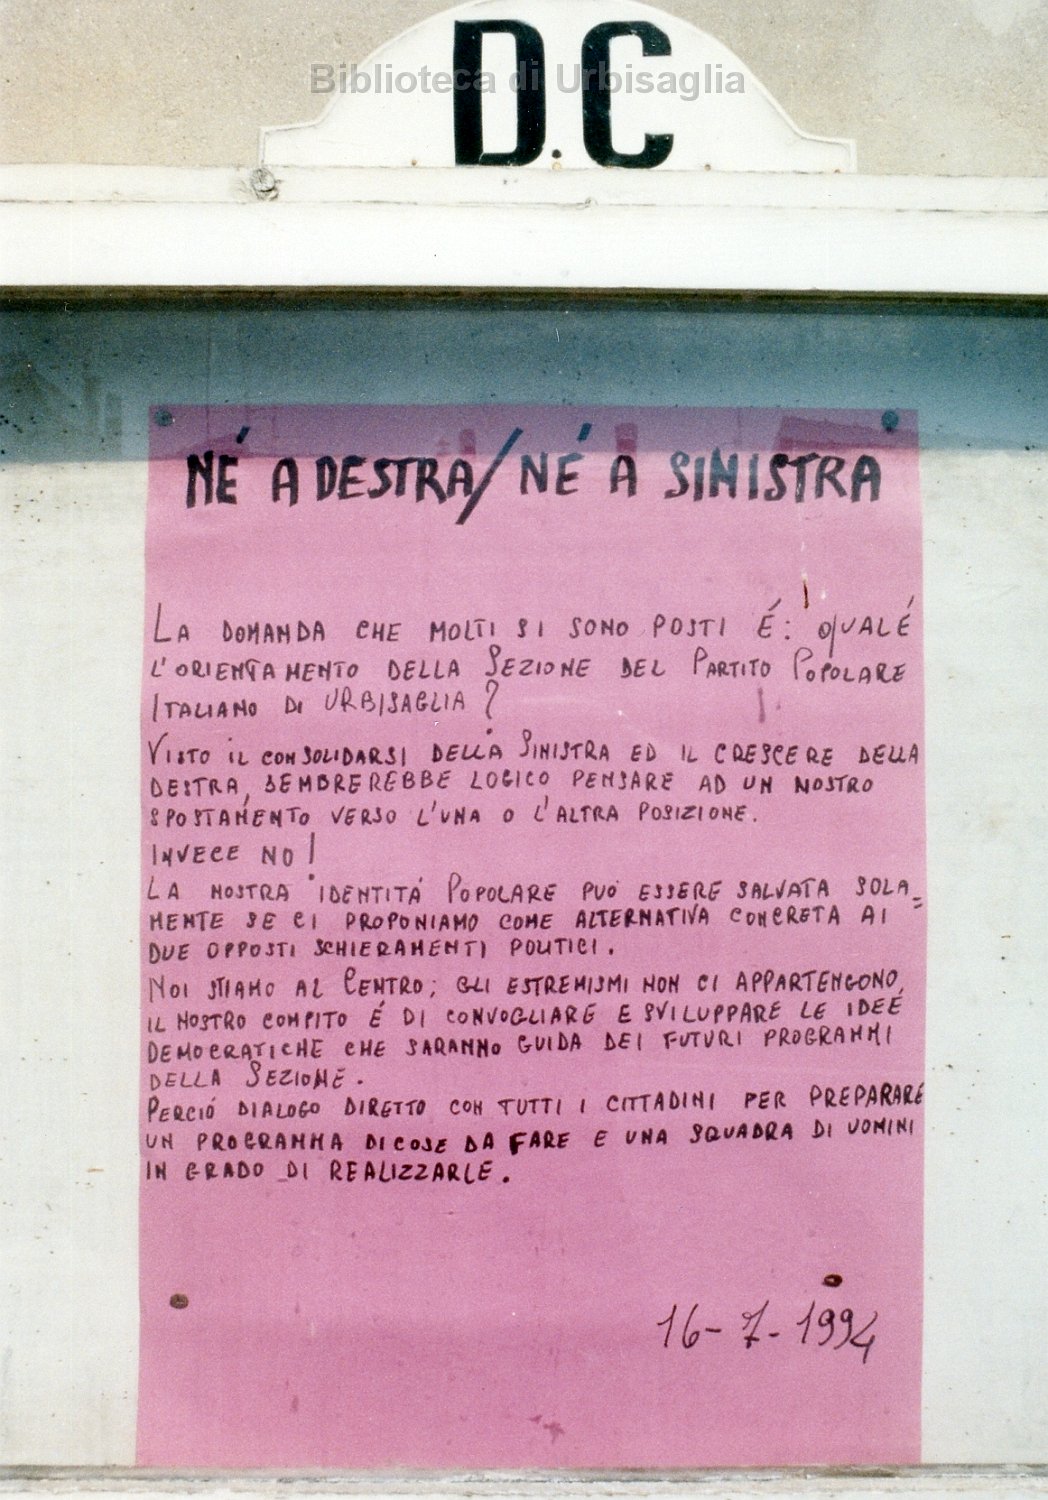 D.C
Biblioteca di Urbisaglia
NÉ A DESTRA/NÉ A SINISTRA
LA DOMANDA CHE MOLTI SI SONO POSTI É: QUAL É
L'ORIENTAMENTO DELLA SEZIONE DEL PARTITO POPOLARE
ITALIANO DI URBISAGLIA?
VISTO IL CONSOLIDARSI DELLA SINISTRA ED IL CRESCERE DELLA
DESTRA, SEMBREREBBE LOGICO PENSARE AD UN NOSTRO
SPOSTAMENTO VERSO L'UNA O L'ALTRA POSIZIONE.
INVECE NO!
LA NOSTRA IDENTITÁ POPOLARE PUÓ ESSERE SALVATA SOLA=
MENTE SE CI PROPONIAMO COME ALTERNATIVA CONCRETA AI
DUE OPPOSTI SCHIERAMENTI POLITICI.
NOI STIAMO AL CENTRO; GLI ESTREMISMI NON CI APPARTENGONO,
IL NOSTRO COMPITO É DI CONVOGLIARE E SVILUPPARE LE IDEE
DEMOCRATICHE CHE SARANNO GUIDA DEI FUTURI PROGRAMMI
DELLA SEZIONE.
PERCIÓ DIALOGO DIRETTO CON TUTTI I CITTADINI PER PREPARARE
UN PROGRAMMA DI COSE DA FARE E UNA SQUADRA DI UOMINI
IN GRADO DI REALIZZARLE.
16-7-1994